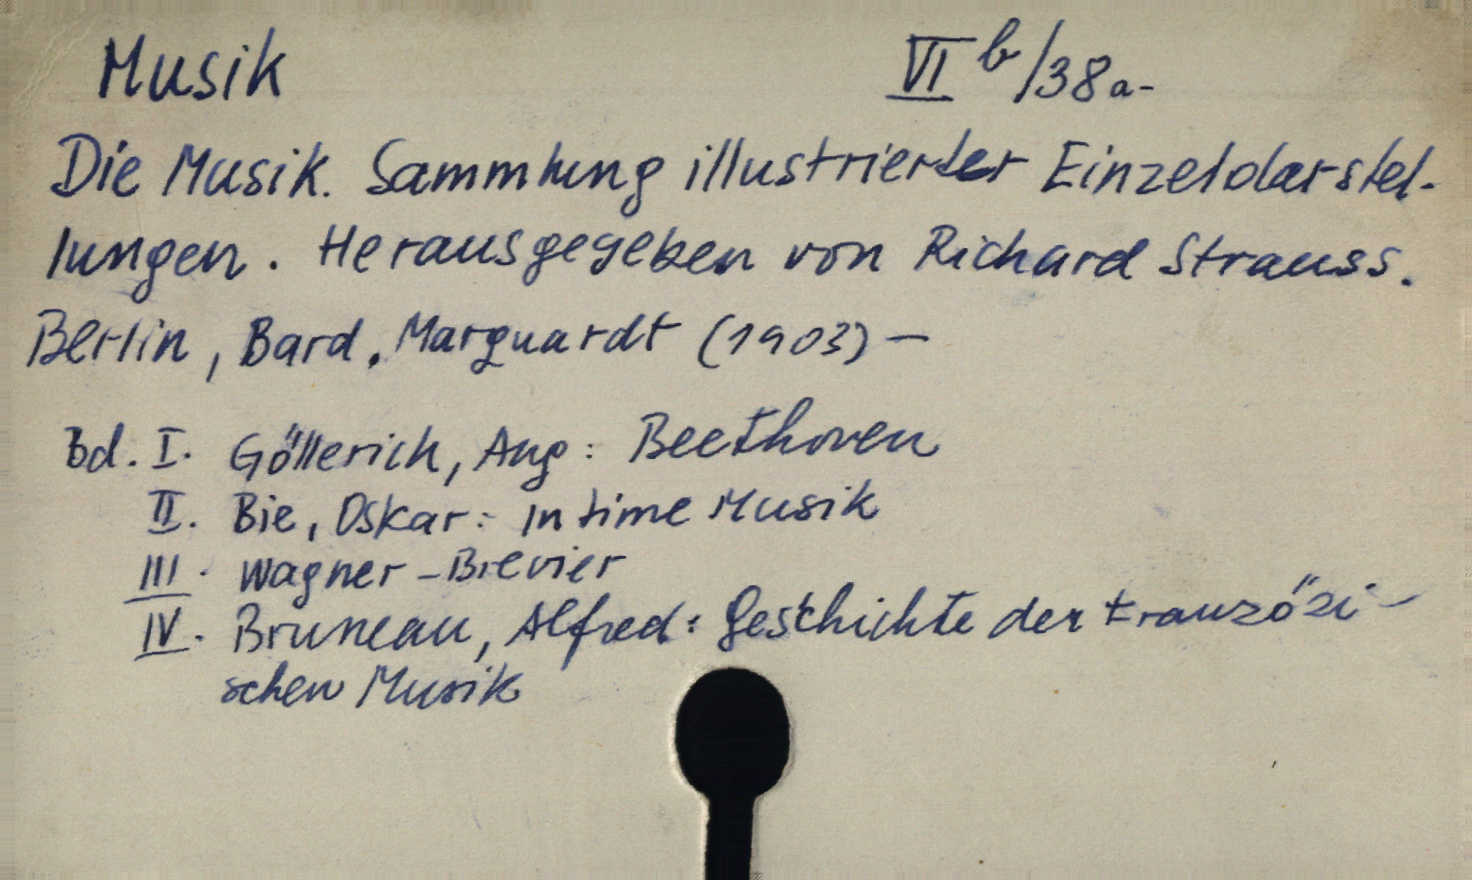 Musik VI b/38a-
Die Musik. Sammlung illustrierter Einzeldarstel-
lungen. Herausgegeben von Richard Strauss.
Berlin, Bard. Marquardt (1903) —
bd. I. Göllerich, Aug: Beethoven
II. Bie, Oskar: intime Musik
III. Wagner-Brevier
IV. Bruneau, Alfred: Geschichte der Französi-
schen Musik